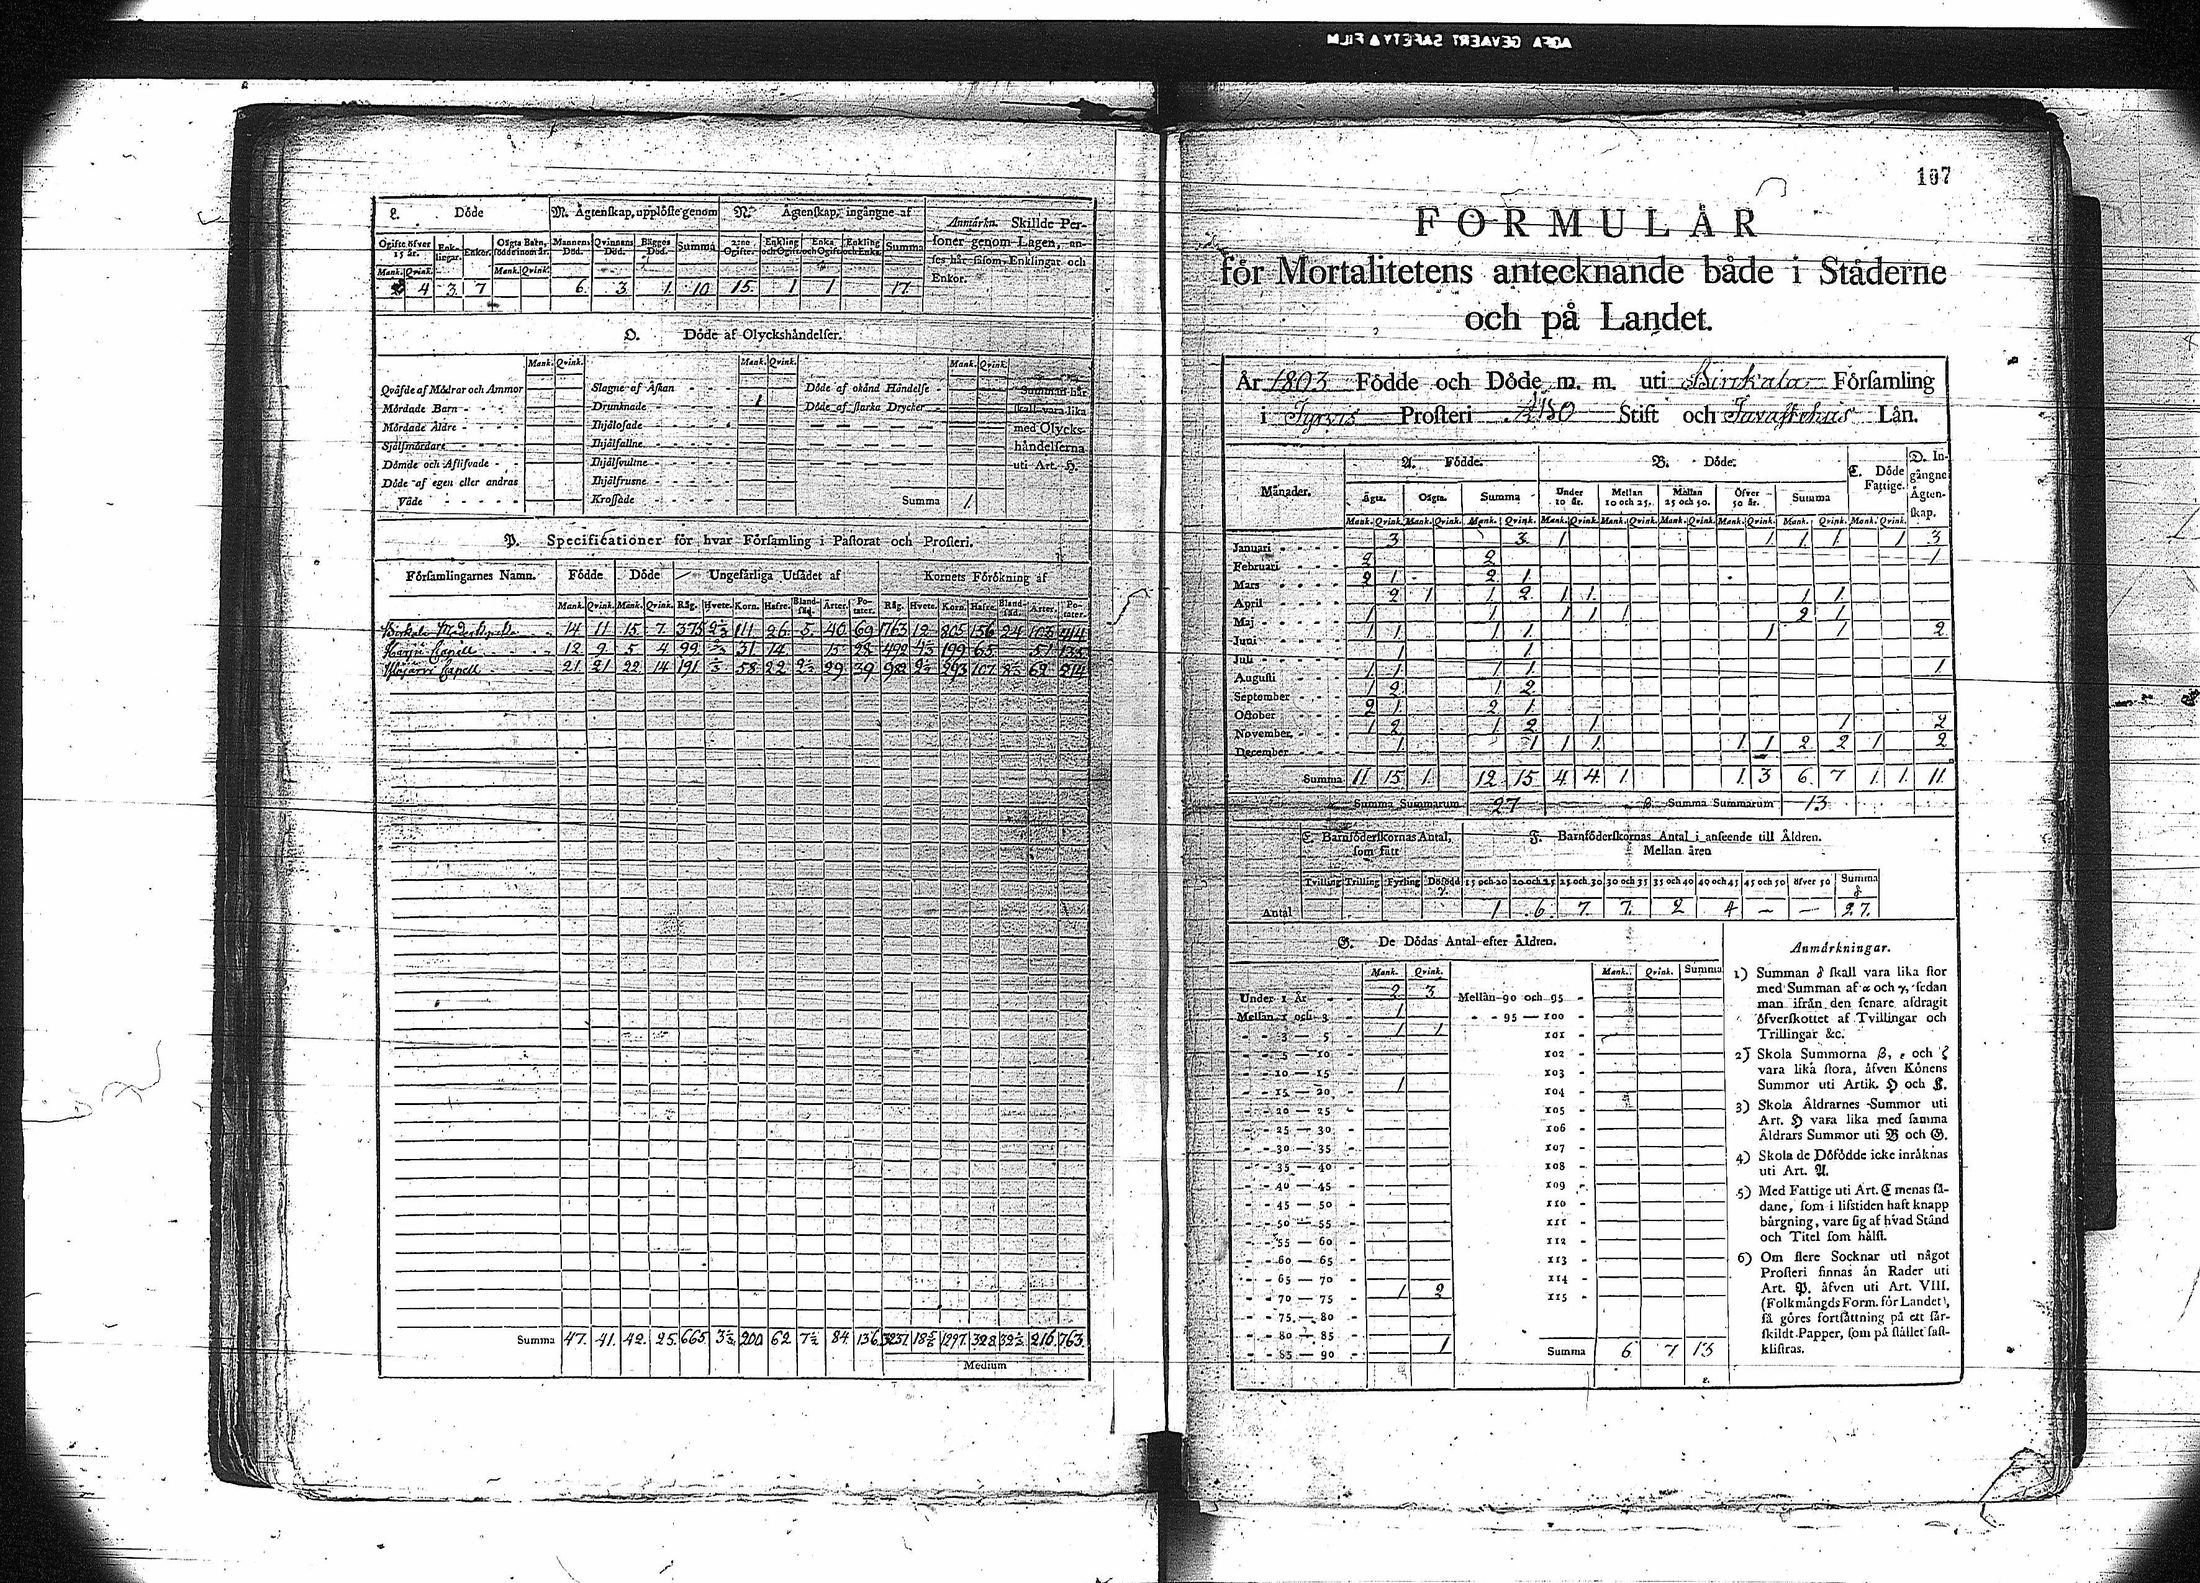 AGFA GEVAERT SAFETY FILM
L. Döde
M. Ägtenskap, upplöste genom
N. Ägtenskap, ingångne af
Anmärkn. Skillde Per-
soner genom Lagen, an-
ses här såsom Enklingar och
Enkor.
Ogifte öfver 15 år. Enk-lingar. Enkor. Oägta Barn, födde inom år. Mannens Död. Qvinnans Död. Bägges Död. Summa 2:ne Ogifte. Enkling och Ogift. Enka och Ogift. Enkling och Enka. Summa
Mank. Qvink. Mank. Qvink.
4 3 7 6 3 1 10 15 1 1 17
O. Döde af Olyckshändelser.
Mank. Qvink. Mank. Qvink. Mank. Qvink.
Qväfde af Mödrar och Ammor Slagne af Åskan Döde af okänd Händelse Summan här
Mördade Barn Drunknade 1 Döde af starka Drycker skall vara lika
Mördade Äldre Ihjälosade med Olycks-
Självmördare Ihjälfallne händelserna
Dömde och Aflifvade Ihjälsvultne uti Art. H.
Döde af egen eller andras Ihjälfrusne
Våde Krossade Summa 1
P. Specificationer för hvar Församling i Pastorat och Prosteri.
Församlingarnes Namn. Födde Döde Ungefärliga Utsädet af Kornets Förökning af
Mank. Qvink. Mank. Qvink. Råg. Hvete. Korn. Hafre. Bland-säd. Ärter. Po-tater. Råg. Hvete. Korn. Hafre. Bland-säd. Ärter. Po-tater.
Birkala Moderkyrka 14 11 15 7 375 2 2/3 111 26 5 40 69 1763 12 805 156 24 103 414
Harju Capell 12 9 5 4 99 31 14 15 28 492 199 65 51 135
Ylöjärvi Capell 21 21 22 14 191 58 22 2 1/2 29 39 982 293 107 62 214
Summa 47. 41. 42. 25. 665 200 62 7 1/2 84 136 3237 18 5/6 1297 328 216 763
Medium
107
FORMULÄR
för Mortalitetens antecknande både i Städerne
och på Landet.
År 1803 Födde och Döde m. m. uti Birkala Församling
i Tyrvis Prosteri Åbo Stift och Tavastehus Län.
Månader. A. Födde. B. Döde. C. Döde Fattige. D. In-gångne Ägten-skap.
Ägta. Oägta. Summa Under 10 år. Mellan 10 och 25. Mellan 25 och 50. Öfver 50 år. Summa
Mank. Qvink. Mank. Qvink. Mank. Qvink. Mank. Qvink. Mank. Qvink. Mank. Qvink. Mank. Qvink. Mank. Qvink. Mank. Qvink.
Januari 3 3 1 1 1 1 1 3
Februari 2 2 1
Mars 2 1 2 1
April 2 1 1 2 1 1 1 1
Maj 1 1 1 1 1 2 1
Juni 1 1 1 1 1 1 2
Juli 1 1
Augusti 1 1 1 1 1
September 1 2 1 2
October 2 1 2 1
November 1 2 1 2 1 1 2
December 1 1 1 1 1 1 2 2 1 2
Summa 11 15 1 12 15 4 4 1 1 3 6 7 1 1 11
α Summa Summarum 27 β Summa Summarum 13
E. Barnföderskornas Antal, som fått
F. Barnföderskornas Antal i anseende till Åldren.
Mellan åren
Tvilling Trilling Fyrling Dödfödd γ 15 och 20 20 och 25 25 och 30 30 och 35 35 och 40 40 och 45 45 och 50 öfver 50 Summa δ
Antal 1 6 7 7 2 4 — — 27
G. De Dödas Antal efter Åldren.
Mank. Qvink. Mank. Qvink. Summa
Under 1 År 2 3 Mellan 90 och 95
Mellan 1 och 3 1 95 — 100
3 — 5 1 1 101
5 — 10 102
10 — 15 103
15 — 20 1 104
20 — 25 105
25 — 30 106
30 — 35 107
35 — 40 108
40 — 45 109
45 — 50 110
50 — 55 111
55 — 60 112
60 — 65 113
65 — 70 114
70 — 75 1 2 115
75 — 80
80 — 85
85 — 90 1 Summa 6 7 13
ε.
Anmärkningar.
1) Summan δ skall vara lika stor
med Summan af α och γ, sedan
man ifrån den senare afdragit
öfverskottet af Tvillingar och
Trillingar &c.
2) Skola Summorna β, ε och ζ
vara lika stora, äfven Könens
Summor uti Artik. H och K.
3) Skola Åldrarnes Summor uti
Art. H vara lika med samma
Åldrars Summor uti B och G.
4) Skola de Döfödde icke inräknas
uti Art. A.
5) Med Fattige uti Art. C menas så-
dane, som i lifstiden haft knapp
bärgning, vare sig af hvad Stånd
och Titel som hälst.
6) Om flere Socknar uti något
Prosteri finnas än Rader uti
Art. P. äfven uti Art. VIII.
(Folkmängds Form. för Landet),
så göres fortsättning på ett sär-
skildt Papper, som på stället fast-
klistras.